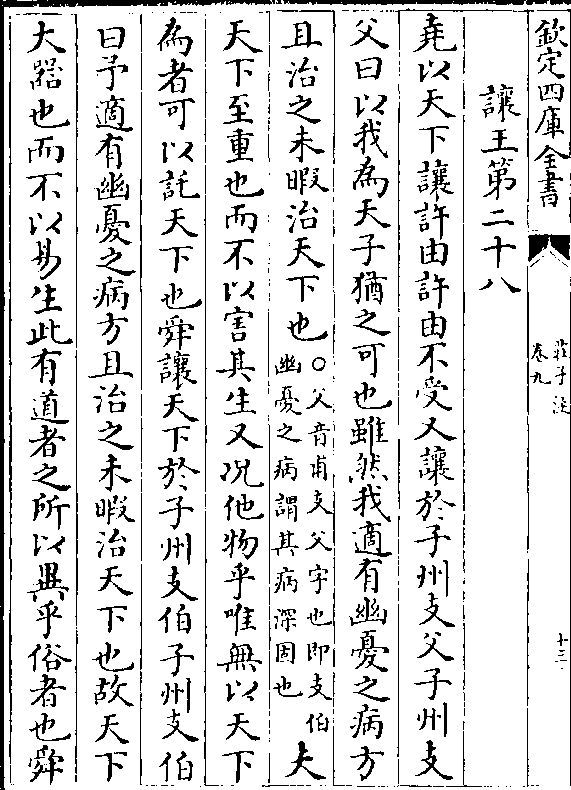 欽定四庫全書
莊子注
卷九
十三
讓王第二十八
堯以天下讓許由許由不受又讓於子州支父子州支
父曰以我為天子猶之可也雖然我適有幽憂之病方
且治之未暇治天下也○父音甫支父字也即支伯
幽憂之病謂其病深固也
夫
天下至重也而不以害其生又況他物乎唯無以天下
為者可以託天下也舜讓天下於子州支伯子州支伯
曰予適有幽憂之病方且治之未暇治天下也故天下
大器也而不以易生此有道者之所以異乎俗者也舜